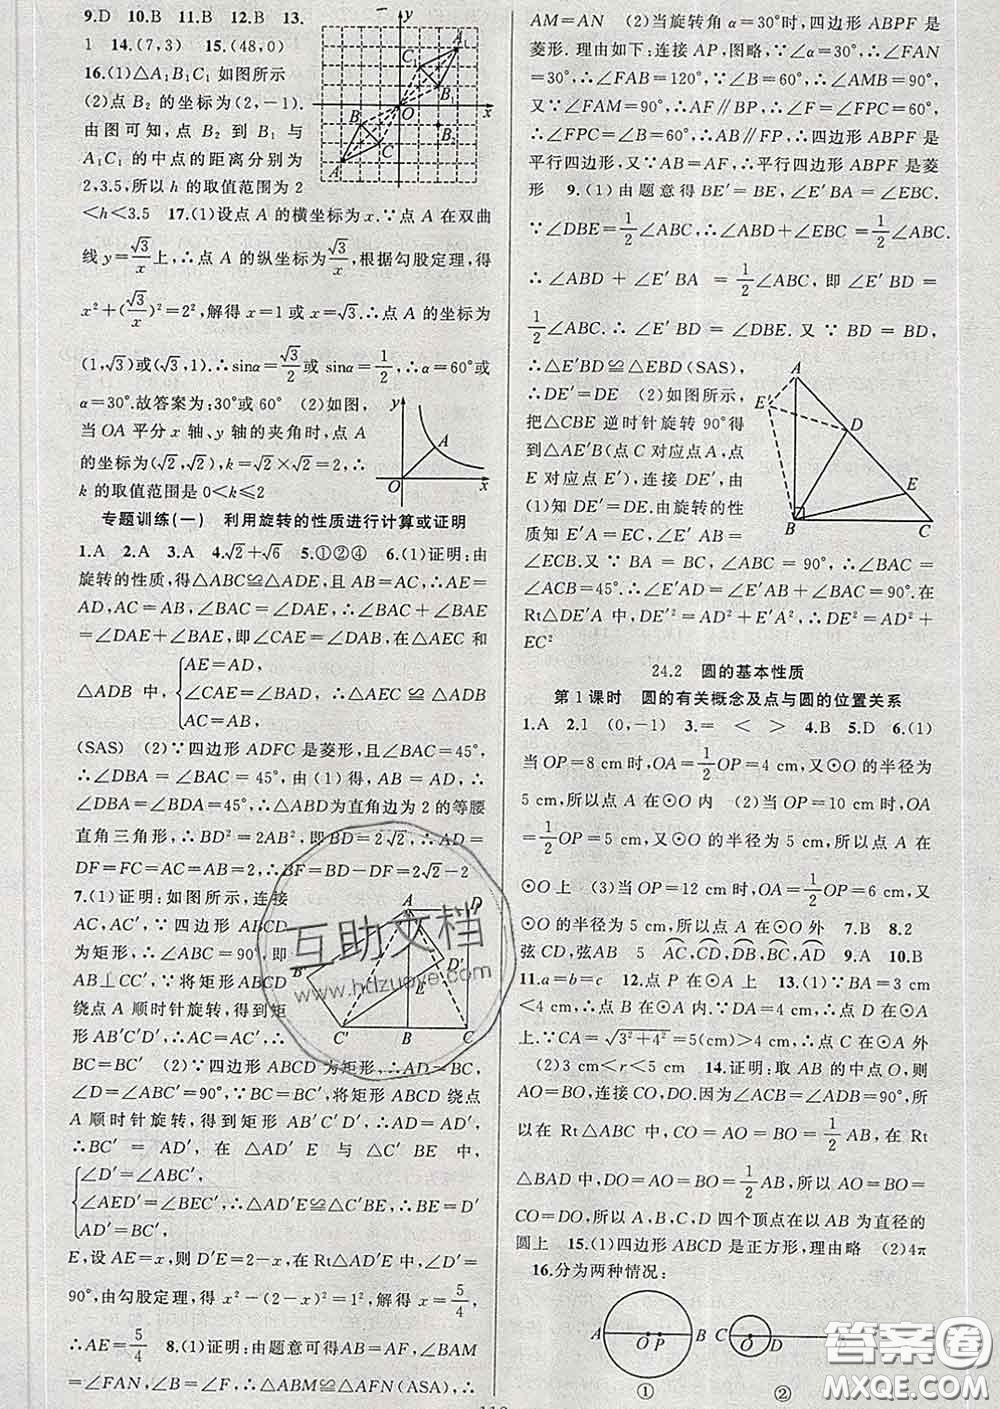 9.D 10.B 11.B 12.B 13.
1 14.(7,3) 15.(48,0)
16.(1)△A₁B₁C₁ 如图所示
(2)点 B₂ 的坐标为(2,-1).
由图可知,点 B₂ 到 B₁ 与
A₁C₁ 的中点的距离分别为
2,3.5,所以 h 的取值范围为 2
<h<3.5 17.(1)设点 A 的横坐标为 x.∵点 A 在双曲
线 y=√3/x 上,∴点 A 的纵坐标为√3/x,根据勾股定理,得
x²+(√3/x)²=2²,解得 x=1 或 x=√3.∴点 A 的坐标为
(1,√3)或(√3,1).∴sinα=√3/2或sinα=1/2,∴α=60°或
α=30°.故答案为:30°或 60° (2)如图,
当 OA 平分 x 轴、y 轴的夹角时,点 A
的坐标为(√2,√2),k=√2×√2=2.∴
k 的取值范围是 0<k≤2
y
A
O
x
专题训练(一) 利用旋转的性质进行计算或证明
1.A 2.A 3.A 4.√2+√6 5.①②④ 6.(1)证明:由
旋转的性质,得△ABC≌△ADE,且 AB=AC,∴AE=
AD,AC=AB,∠BAC=∠DAE,∴∠BAC+∠BAE
=∠DAE+∠BAE,即∠CAE=∠DAB,在△AEC 和
△ADB 中,{AE=AD, ∠CAE=∠BAD, AC=AB, ∴△AEC ≌ △ADB
(SAS) (2)∵四边形 ADFC 是菱形,且∠BAC=45°,
∴∠DBA = ∠BAC = 45°,由(1)得,AB = AD,∴
∠DBA=∠BDA=45°,∴△ABD为直角边为 2 的等腰
直角三角形,∴BD²=2AB²,即BD=2√2,∴AD=
DF=FC=AC=AB=2,∴BF=BD-DF=2√2-2
7.(1)证明:如图所示,连接
AC,AC′,∵四边形 ABCD
为矩形,∴∠ABC=90°,即
AB⊥CC′,∵将矩形 ABCD
绕点 A 顺时针旋转,得到矩
形 AB′C′D′,∴AC=AC′,∴
BC=BC′ (2)∵四边形 ABCD 为矩形,∴AD=BC,
∠D=∠ABC′=90°,∵BC=BC′,∴将矩形 ABCD 绕点
A 顺时针旋转,得到矩形 AB′C′D′,∴AD=AD′,
∴BC′ = AD′,在 △AD′E 与 △C′BE 中,
{∠D′=∠ABC′,
∠AED′=∠BEC′,∴△AD′E≌△C′BE,∴BE=D′
AD′=BC′,
E,设 AE=x,则 D′E=2-x,在 Rt△AD′E 中,∠D′=90°,
由勾股定理,得 x²-(2-x)²=1²,解得 x=5/4,
∴AE=5/4 8.(1)证明:由题意可得 AB=AF,∠BAM
=∠FAN,∠B=∠F,∴△ABM≌△AFN(ASA),∴
AM=AN (2)当旋转角 α=30°时,四边形 ABPF 是
菱形.理由如下:连接 AP,图略,∵∠α=30°,∠FAN
=30°,∴∠FAB=120°,∵∠B=60°,∴∠AMB=90°,
又∵∠FAM=90°,∴AF∥BP,∴∠F=∠FPC=60°,
∴∠FPC=∠B=60°,∴AB∥FP,∴四边形 ABPF 是
平行四边形,又∵AB=AF,∴平行四边形 ABPF 是菱
形 9.(1)由题意得 BE′=BE,∠E′BA=∠EBC.
∵∠DBE=1/2∠ABC,∴∠ABD+∠EBC=1/2∠ABC.
∴∠ABD + ∠E′BA = 1/2∠ABC, 即 ∠E′BD =
1/2∠ABC.∴ ∠E′BD = ∠DBE.又 ∵ BD = BD,
∴△E′BD≌△EBD(SAS),
∴DE′=DE (2)如图所示,
把△CBE 逆时针旋转 90°得
到△ABE′(点 C 对应点 A,点
E 对应点 E′),连接 DE′,由
(1)知 DE′=DE.由旋转的性
质知 E′A=EC,∠E′AB=
∠ECB.又∵BA = BC,∠ABC = 90°,∴∠BAC =
∠ACB=45°.∴∠E′AD=∠E′AB+∠BAC=90°.在
Rt△DE′A 中,DE′²=AD²+E′A²,∴DE²=AD²+
EC²
24.2 圆的基本性质
第 1 课时 圆的有关概念及点与圆的位置关系
1.A 2.1 (0,-1) 3.= < > 4.B 5.D 6.(1)
当 OP=8 cm 时,OA=1/2OP=4 cm,又⊙O 的半径为
5 cm,所以点 A 在⊙O 内 (2)当 OP=10 cm 时,OA
=1/2OP=5 cm,又⊙O 的半径为 5 cm,所以点 A 在
⊙O 上 (3)当 OP=12 cm 时,OA=1/2OP=6 cm,又
⊙O 的半径为 5 cm,所以点 A 在⊙O 外 7.B 8.2
弦CD,弦AB 5 AC,CD,BC,AD 9.A 10.B
11.a=b=c 12.点 P 在⊙A 上 13.(1)∵BA=3 cm
<4 cm,∴点 B 在⊙A 内.∵DA=4 cm,∴点 D 在⊙A
上.∵CA=√3²+4²=5(cm)>4 cm,∴点 C 在⊙A 外
(2)3 cm<r<5 cm 14.证明:取 AB 的中点 O,则
AO=BO,连接 CO,DO,因为∠ACB=∠ADB=90°,所
以在 Rt△ABC 中,CO=AO=BO=1/2AB,在 Rt
△BAD 中,DO=AO=BO=1/2AB,所以 AO=BO=
CO=DO,所以 A,B,C,D 四个顶点在以 AB 为直径的
圆上 15.(1)四边形 ABCD 是正方形,理由略 (2)4π
16.分为两种情况:
A O P B C O D
① ②
互助文档
www.hdzuoye.com
答案圈
MXQE.COM